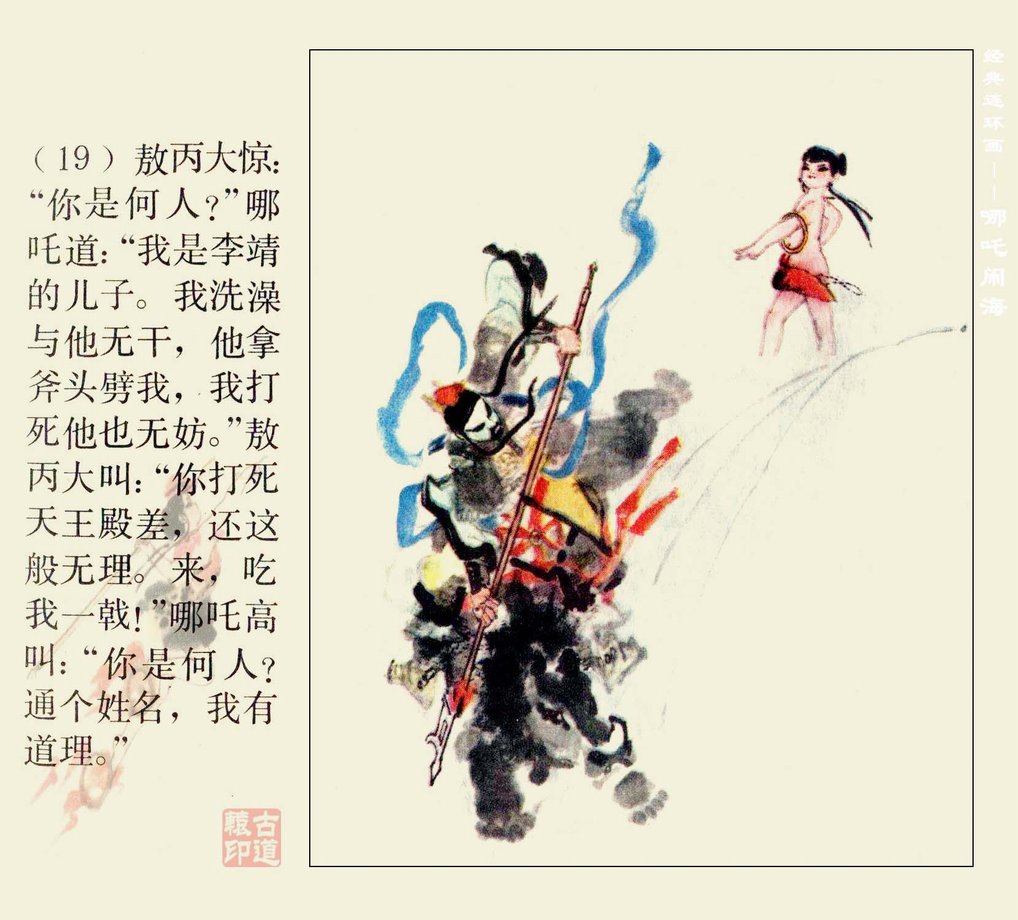 （19）敖丙大惊：
“你是何人？”哪
吒道：“我是李靖
的儿子。我洗澡
与他无干，他拿
斧头劈我，我打
死他也无妨。”敖
丙大叫：“你打死
天王殿差，还这
般无理。来，吃
我一戟！”哪吒高
叫：“你是何人？
通个姓名，我有
道理。”
经典连环画——哪吒闹海
古道
辕印